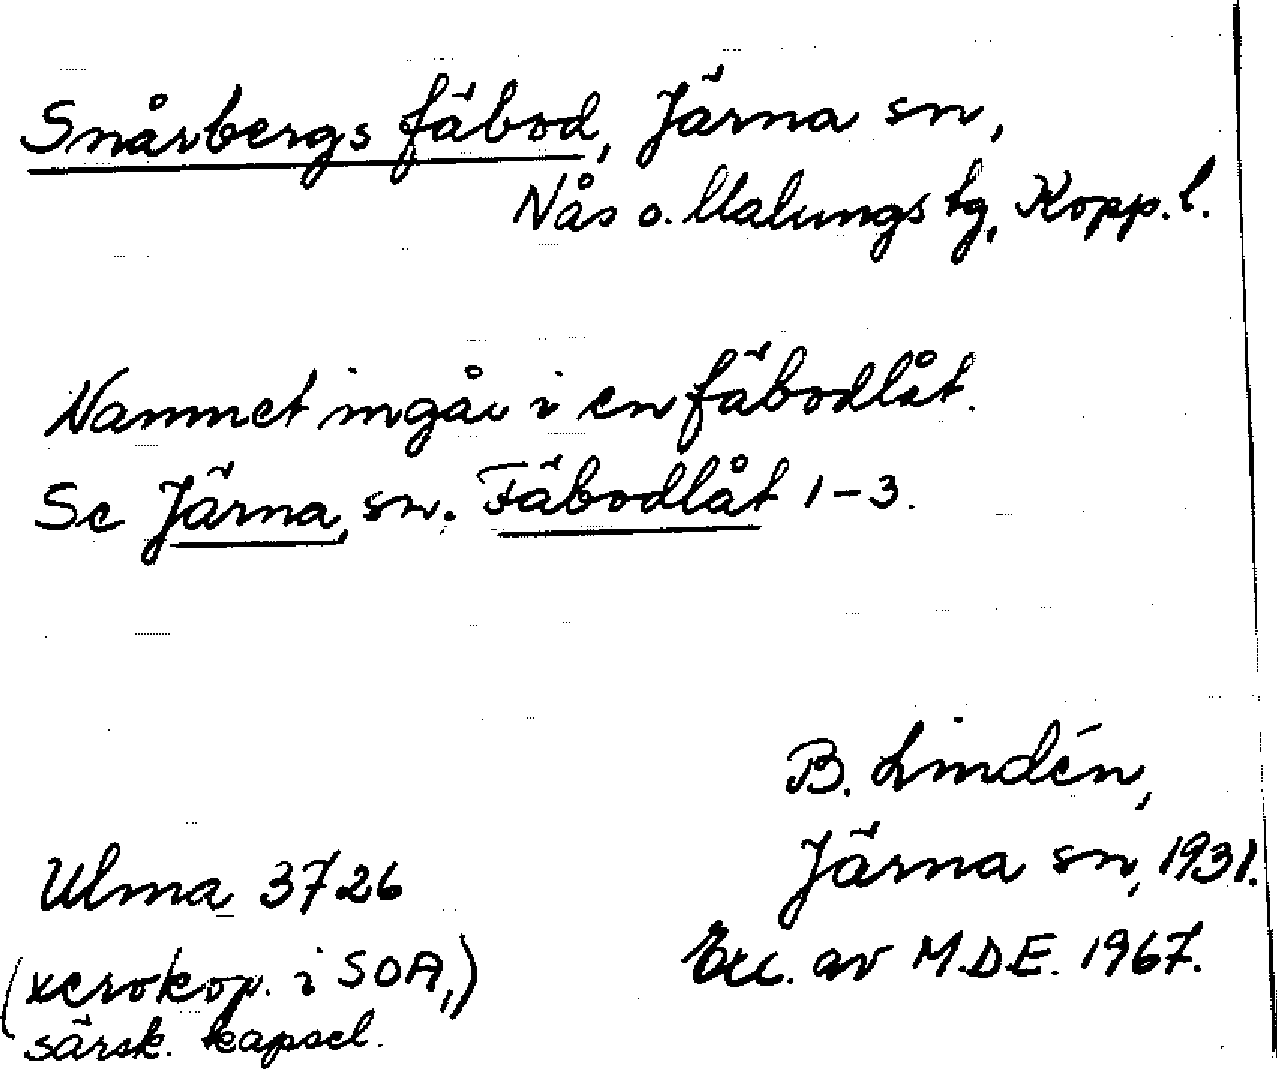 Snårbergs fäbod, Järna sn,
Nås o. Malungs tg, Kopp. l.
Namnet ingår i en fäbodlåt.
Se Järna, sn. Fäbodlåt 1-3.
B. Lindén,
Järna sn, 1931.
Ulma 3726
Exc. av M.D.E. 1967.
(xerokop. i SOA,)
särsk. kapsel.